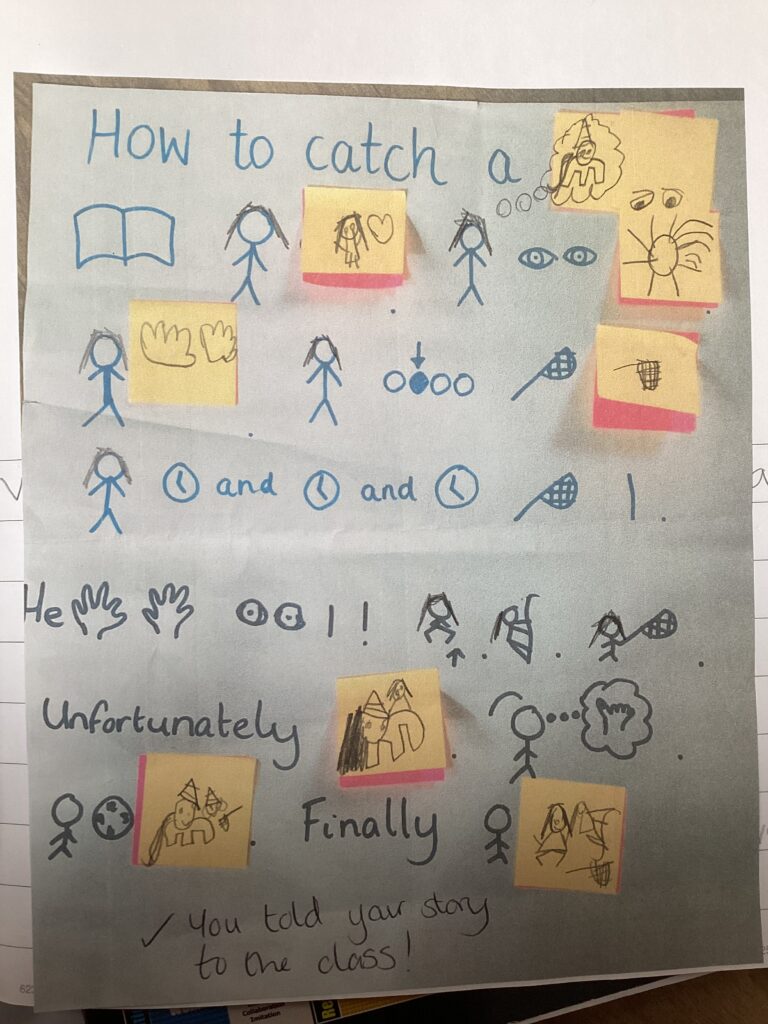 How to catch a
and and
He !
Unfortunately
Finally
✓ You told your story
to the class!
Collaboration
Imitation